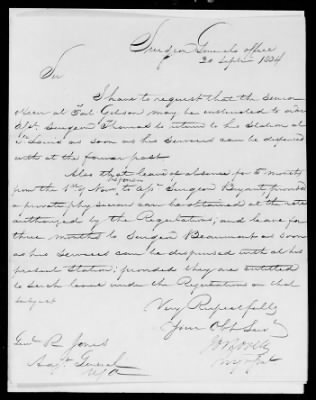 Surgeon Generals office
20 Septr 1834
Sir
I have to request that the senior
officer at Fort Gibson may be instructed to
Asst Surgeon Thomas to return to his station at
as soon as his services can be dispensed
with at the former post
Also that leave of absence for 6 months
from the 1st of Nov. to Asst Surgeon Byant provided
a private physician can be obtained at the rate
authorized by the Regulations; and leave for
three months to Surgeon Beaumont as soon
as his services can be dispensed with at his
present station; provided they are entitled
to such leave under the Regulations on that
subject
Very Respectfully
Your Obt Servt
Genl R Jones
Adjt General